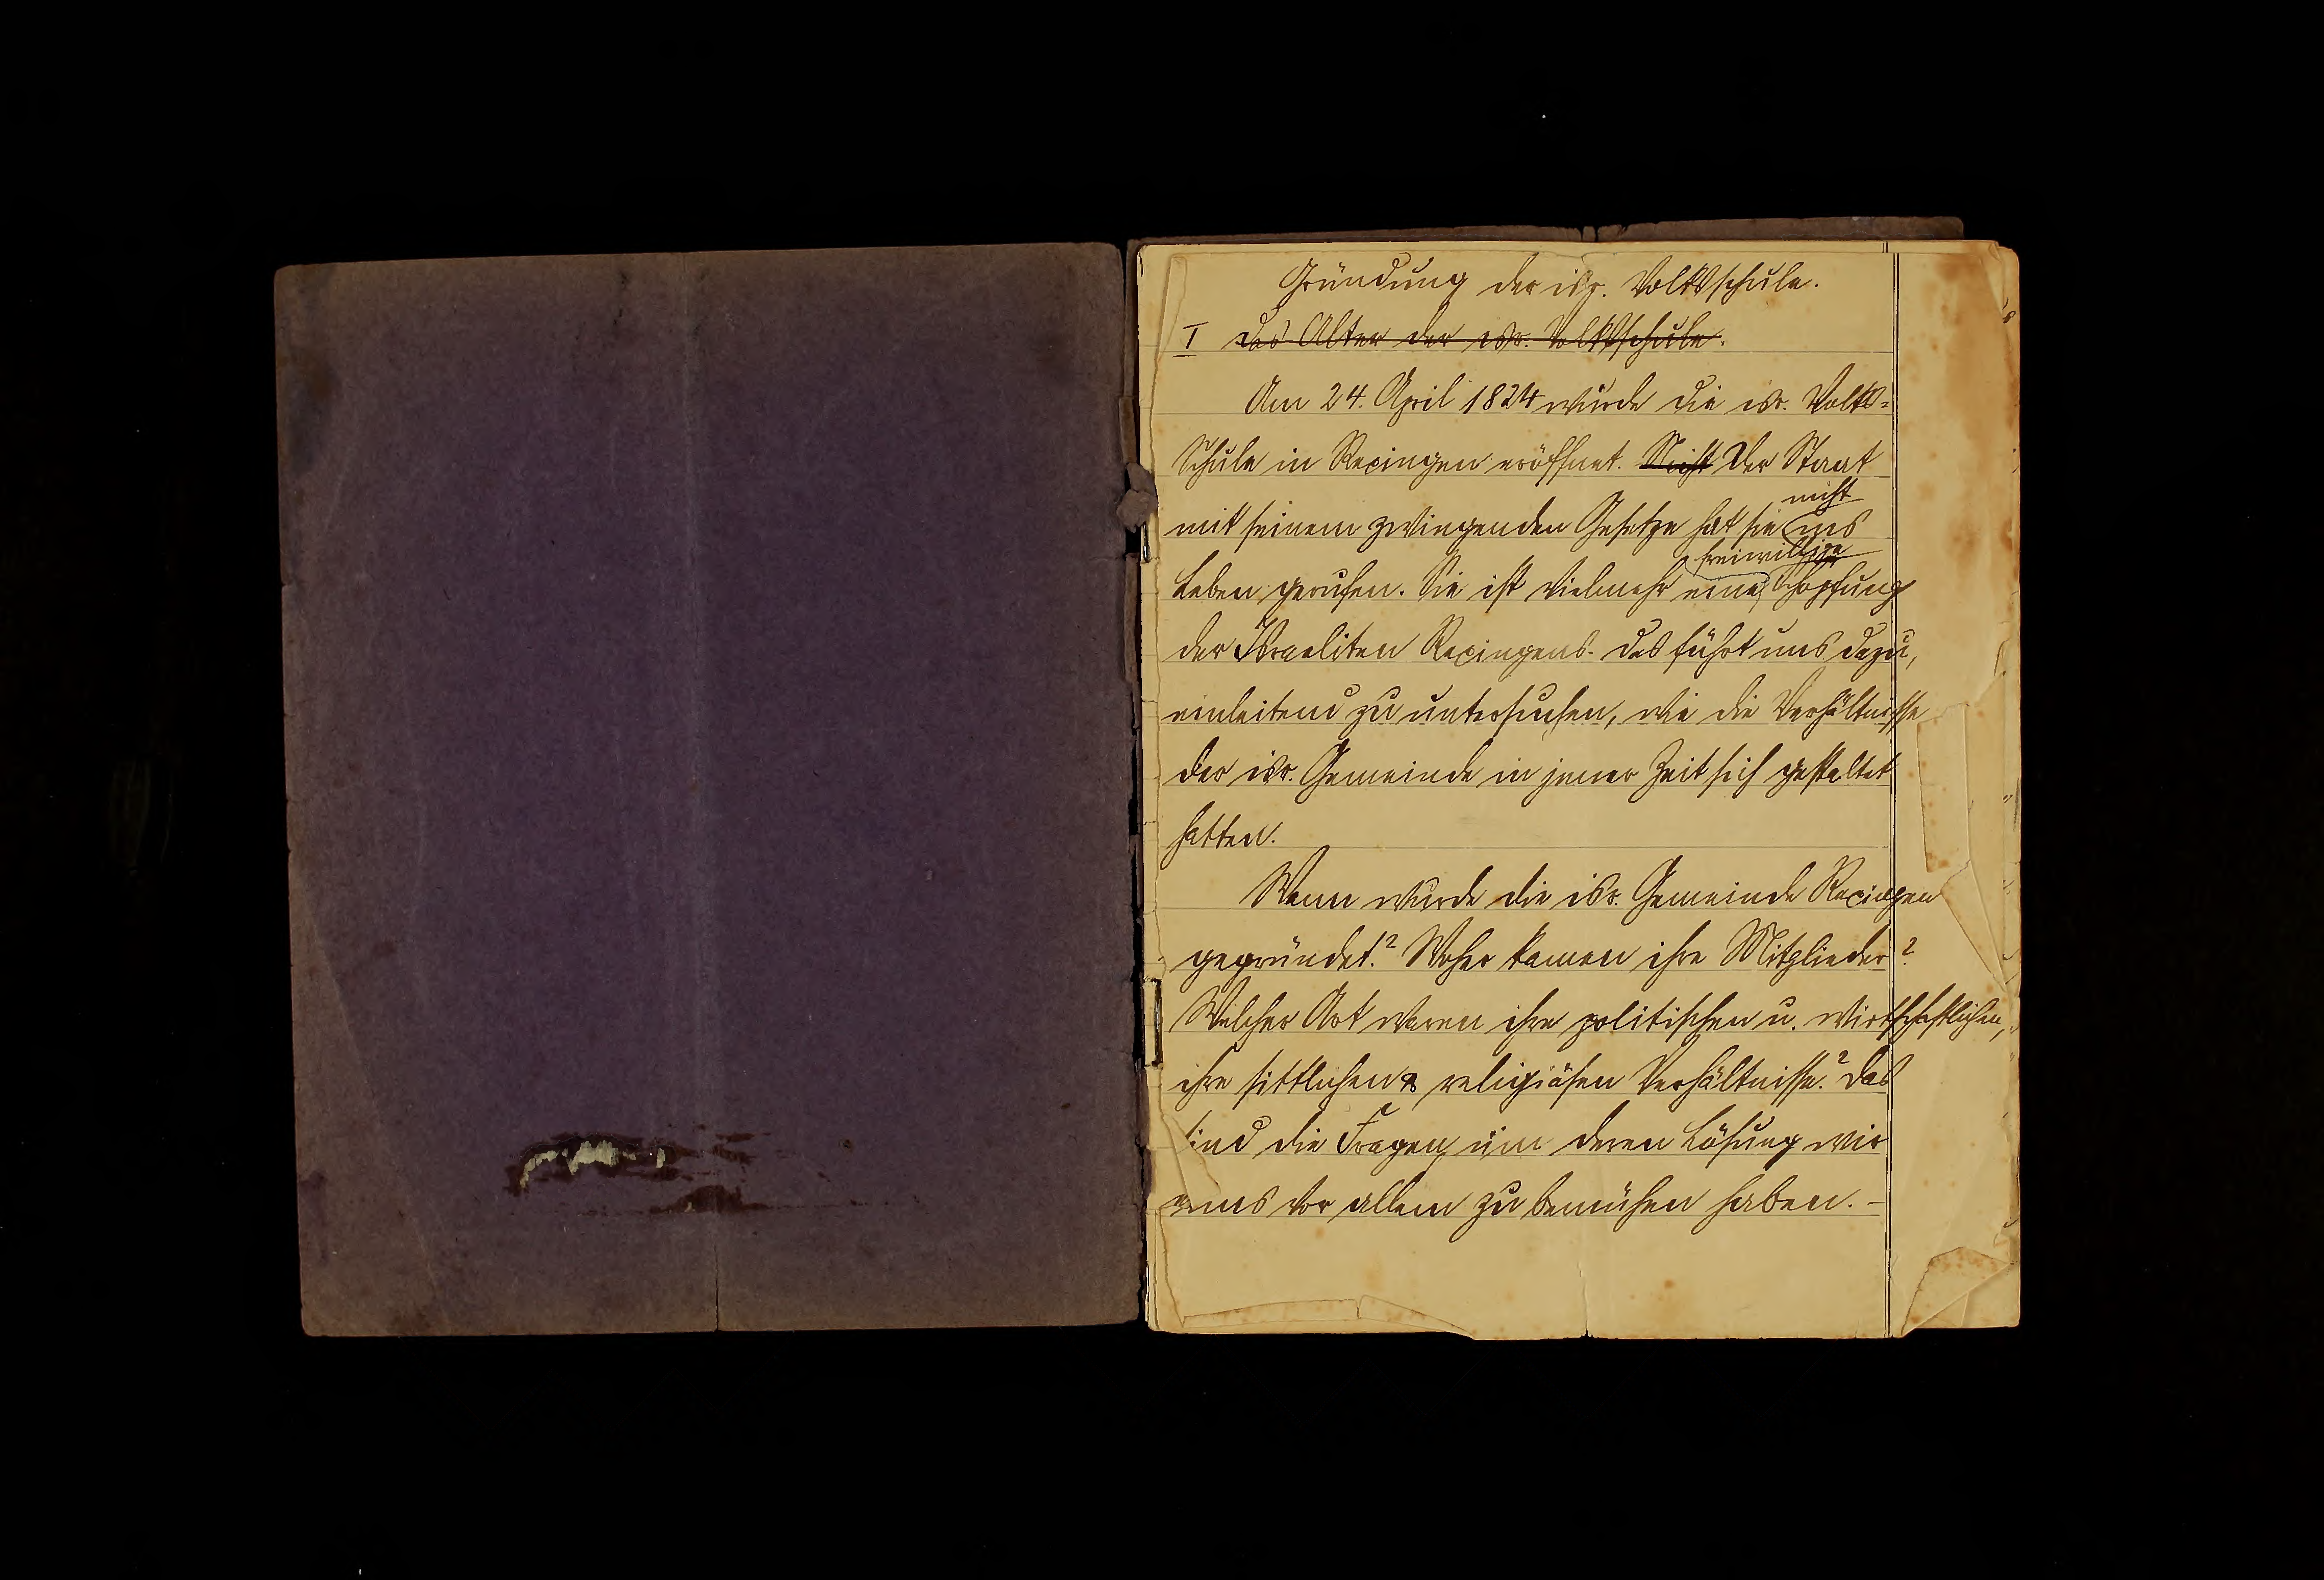 Gründung der isr. Volksschule.
I Das Alter der isr. Volksschule.
Am 24. April 1824 wurde die isr. Volks-
Schule in Rexingen eröffnet. Nicht Der Staat
nicht
mit seinem zwingenden Gesetze hat sie ins
freiwillige
Leben gerufen. Sie ist vielmehr eine Schöpfung
der Israeliten Rexingens. Das führt uns dazu,
einleitend zu untersuchen, wie die Verhältnisse
der isr. Gemeinde in jener Zeit sich gestaltet
hatten.
Wann wurde die isr. Gemeinde Rexingen
gegründet? Woher kamen ihre Mitglieder?
Welcher Art waren ihre politischen u. wirtschaftlichen,
ihre sittlichen & religiösen Verhältnisse? Das
sind die Fragen, um deren Lösung wir
uns vor allem zu bemühen haben. –